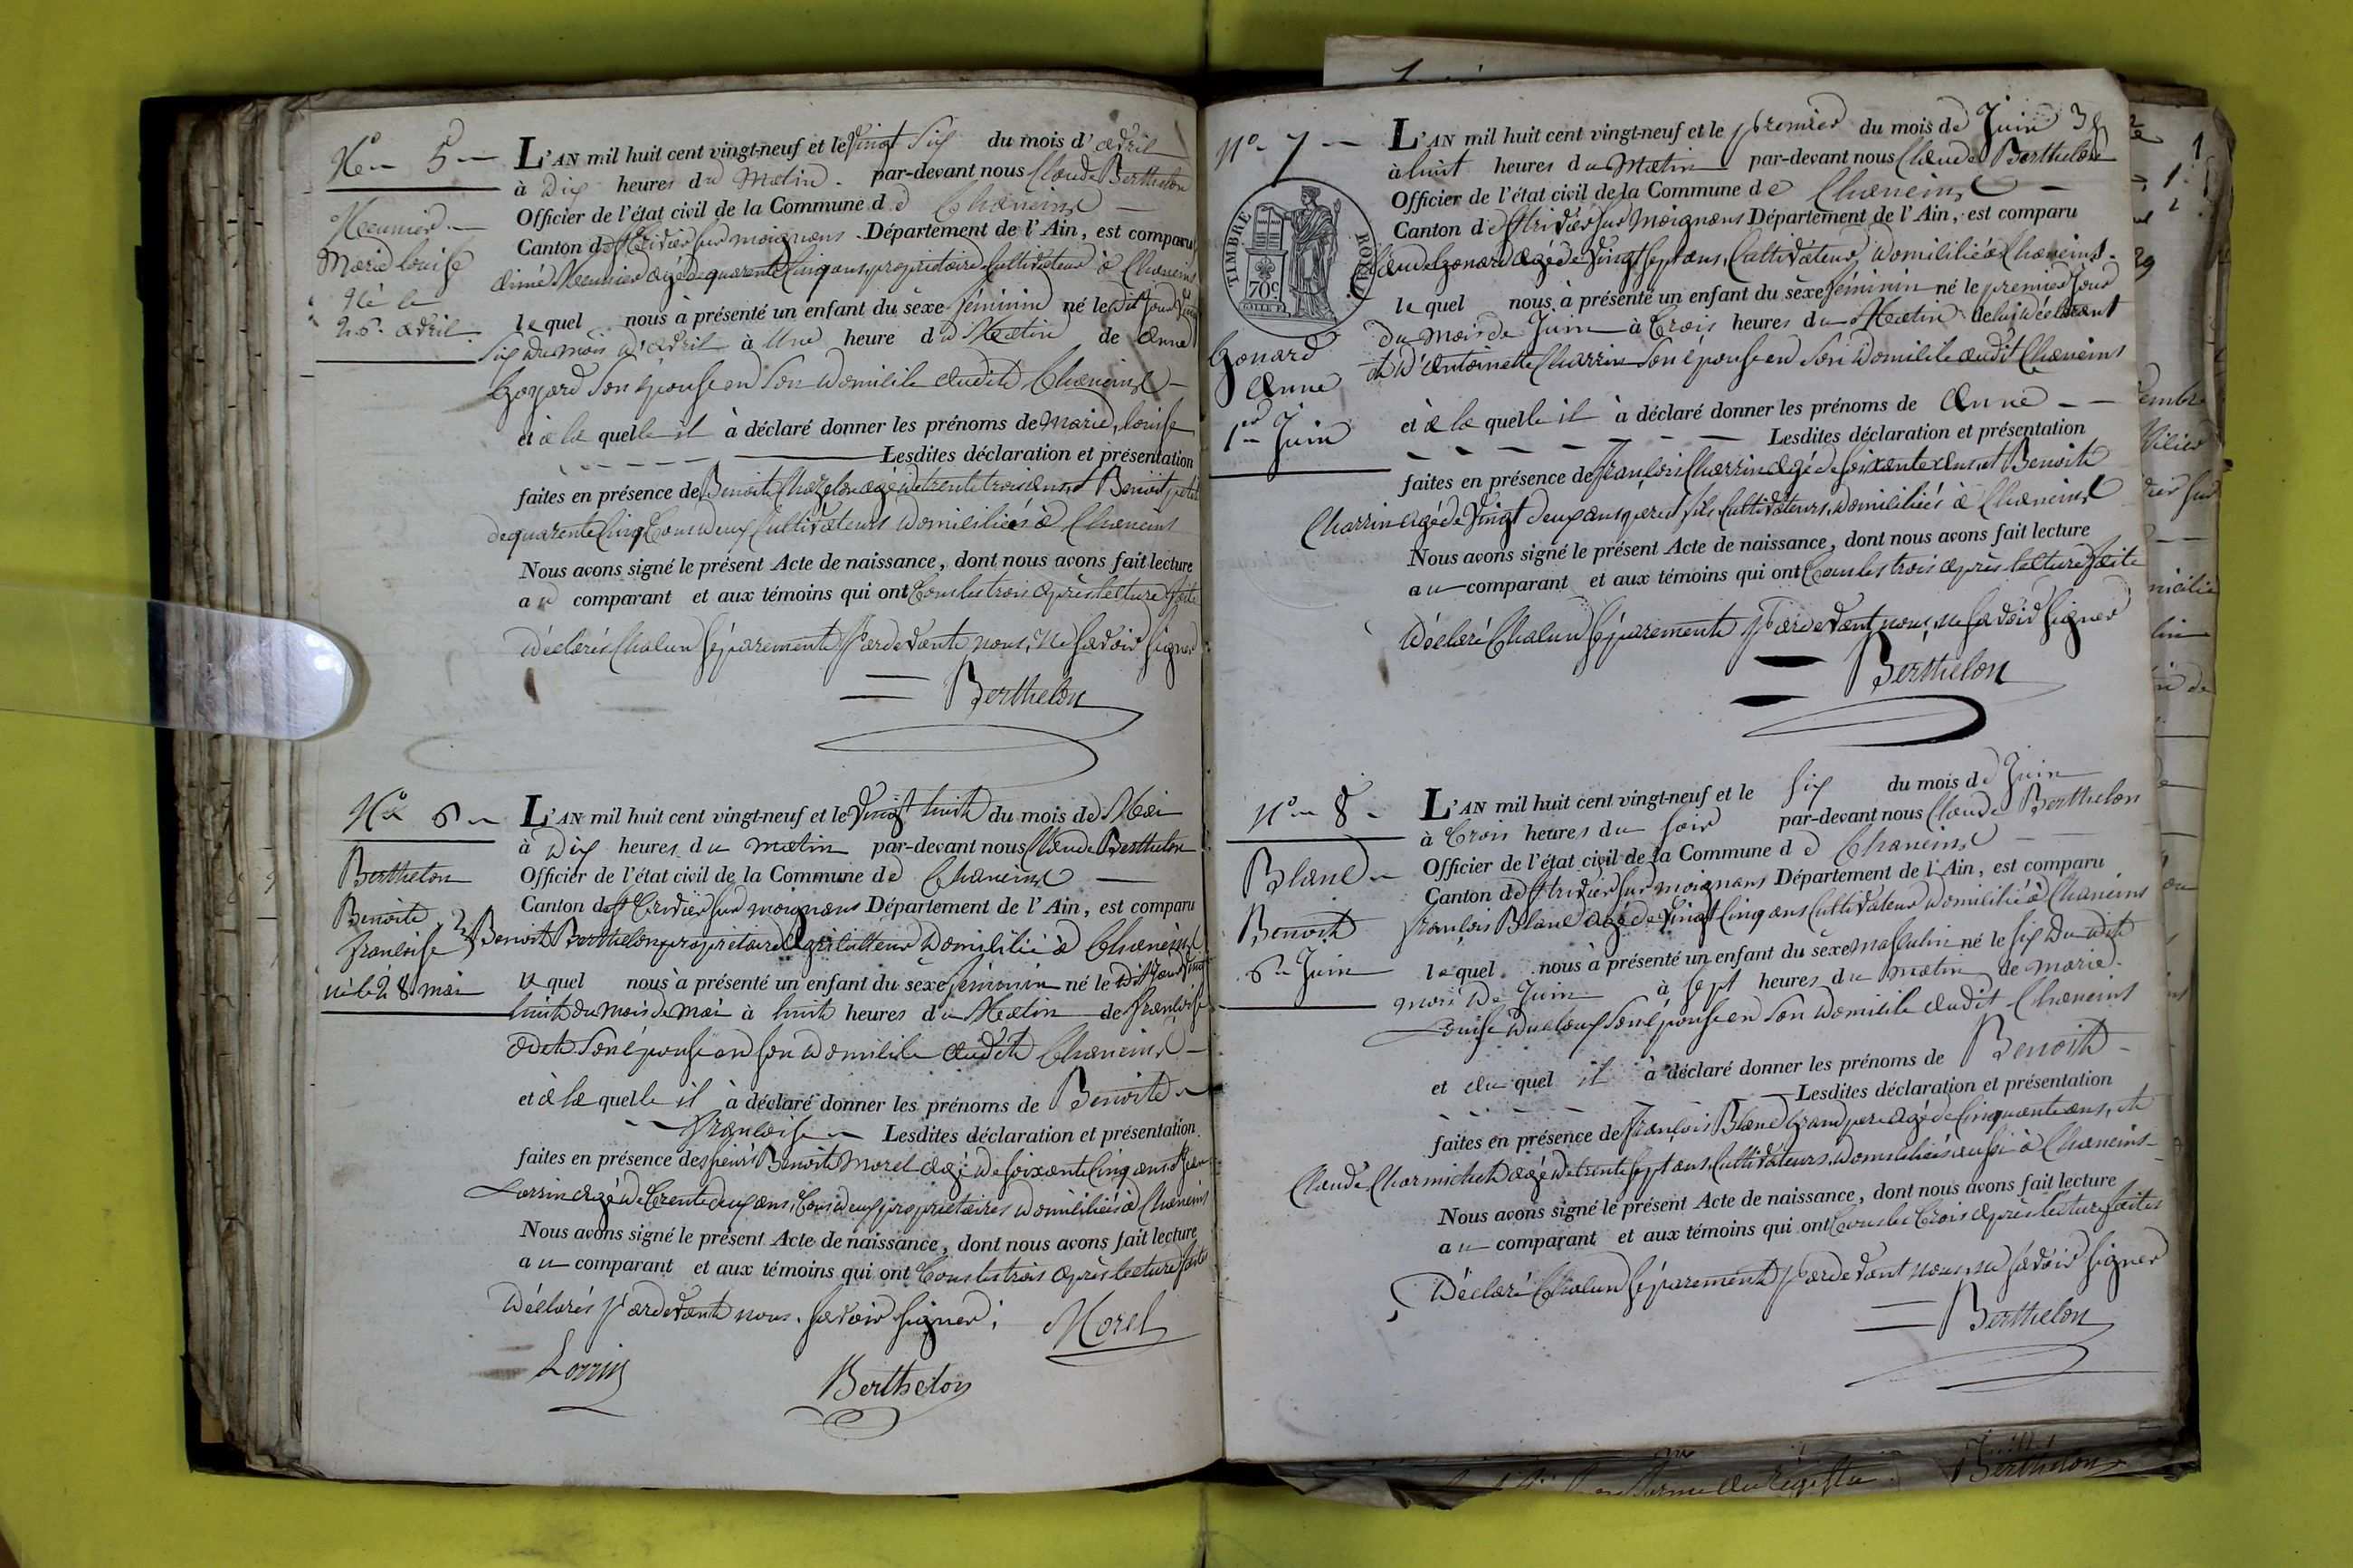 N° 5
Meunier
Marie Louise
Né le
26 avril
L'AN mil huit cent vingt-neuf et le vingt Six du mois d'avril
à Dix heures du Matin par-devant nous Claude Berthelon
Officier de l'état civil de la Commune de Chaneins
Canton de St tridier sur moignans Département de l'Ain, est comparu
aimé Meunier agé de quarente Cinq ans, proprietaire Cultivateur à Chaneins
lequel nous à présenté un enfant du sèxe féminin né le dit jour vingt
Six du mois d'avril à Une heure du Matin de Anne
Gonard Son épouse en Son Domicile audit Chaneins
et à la quelle il à déclaré donner les prénoms de Marie, Louise
Lesdites déclaration et présentation
faites en présence de Benoit Chazelon agé de trente trois ans, et Benoit petit
de quarente Cinq tous deux Cultivateurs Domiciliés à Chaneins
Nous avons signé le présent Acte de naissance, dont nous avons fait lecture
au comparant et aux témoins qui ont tous les trois après lecture faite
Déclarés Chacun Séparement Pardevant nous, ne Savoir Signer
Berthelon
N° 6
Berthelon
Benoite
françoise
né le 28 mai
L'AN mil huit cent vingt-neuf et le vingt huit du mois de Mai
à Dix heures du matin par-devant nous Claude Berthelon
Officier de l'état civil de la Commune de Chaneins
Canton de St tridier sur moignans Département de l'Ain, est comparu
Benoit Berthelon proprietaire Agriculteur Domicilié à Chaneins
le quel nous à présenté un enfant du sèxe féminin né le Dit Jour vingt
huit du mois de mai à huit heures du Matin de françoise
Odet Son épouse en Son Domicile audit Chaneins
et à la quelle il à déclaré donner les prénoms de Benoite
françoise Lesdites déclaration et présentation
faites en présence des sieurs Benoit Morel agé de Soixante Cinq ans et Jean
Lorrin agé de trente deux ans, tous deux proprietaires Domiciliés à Chaneins
Nous avons signé le présent Acte de naissance, dont nous avons fait lecture
au comparant et aux témoins qui ont tous les trois après lecture faite
Déclarés Pardevant nous Savoir Signer. Morel
Lorrin Berthelon
N° 7
TIMBRE ROYAL
70c
Gonard
Anne
1er Juin
L'AN mil huit cent vingt-neuf et le premier du mois de Juin
à huit heures du Matin par-devant nous Claude Berthelon
Officier de l'état civil de la Commune de Chaneins
Canton de St tridier sur Moignans Département de l'Ain, est comparu
Claude Gonard agé de vingt Sept ans, Cultivateur Domicilié à Chaneins
lequel nous à présenté un enfant du sèxe féminin né le premier Jour
du mois de Juin à trois heures du Matin de lui Déclarant
et d'Antoinette Charrin Son épouse en Son Domicile audit Chaneins
et à la quelle il à déclaré donner les prénoms de Anne
Lesdites déclaration et présentation
faites en présence de françois Charrin agé de Soixante ans et Benoit
Charrin agé de vingt deux ans, pere et fils Cultivateurs, Domiciliés à Chaneins
Nous avons signé le présent Acte de naissance, dont nous avons fait lecture
au comparant et aux témoins qui ont tous les trois après lecture faite
Déclaré Chacun Séparement Pardevant nous, ne Savoir Signer
Berthelon
N° 8
Blanc
Benoit
6 Juin
L'AN mil huit cent vingt-neuf et le Six du mois de Juin
à trois heures du Soir par-devant nous Claude Berthelon
Officier de l'état civil de la Commune de Chaneins
Canton de St tridier sur moignans Département de l'Ain, est comparu
françois Blanc agé de vingt Cinq ans Cultivateur Domicilié à Chaneins
lequel nous à présenté un enfant du sèxe masculin né le Six Du dit
mois de Juin à Sept heures du matin de marie
Louise Ducloux Son épouse en Son Domicile audit Chaneins
et au quel il à déclaré donner les prénoms de Benoit
Lesdites déclaration et présentation
faites en présence de françois Blanc grand pere agé de Cinquante ans, et
Claude Charmichet agé de trente Sept ans, Cultivateurs, Domiciliés aussi à Chaneins
Nous avons signé le présent Acte de naissance, dont nous avons fait lecture
au comparant et aux témoins qui ont tous les trois après lecture faites
Déclaré Chacun Séparement Pardevant nous, ne Savoir Signer
Berthelon
Berthelon